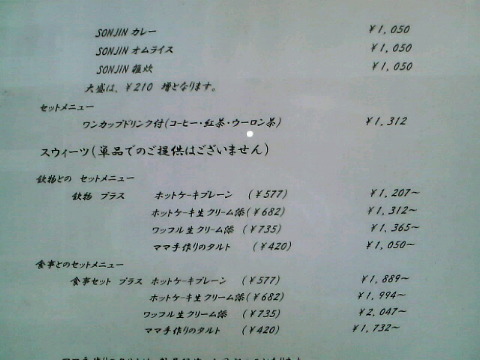 SONJIN カレー ￥1,050
SONJIN オムライス ￥1,050
SONJIN 雑炊 ￥1,050
大盛は、￥210 増となります。
セットメニュー
ワンカップドリンク付(コーヒー・紅茶・ウーロン茶) ￥1,312
スウィーツ(単品でのご提供はございません)
飲物との セットメニュー
飲物 プラス ホットケーキプレーン (￥577) ￥1,207～
ホットケーキ生クリーム添(￥682) ￥1,312～
ワッフル生クリーム添 (￥735) ￥1,365～
ママ手作りのタルト (￥420) ￥1,050～
食事とのセットメニュー
食事セット プラス ホットケーキプレーン (￥577) ￥1,889～
ホットケーキ生クリーム添(￥682) ￥1,994～
ワッフル生クリーム添 (￥735) ￥2,047～
ママ手作りのタルト (￥420) ￥1,732～